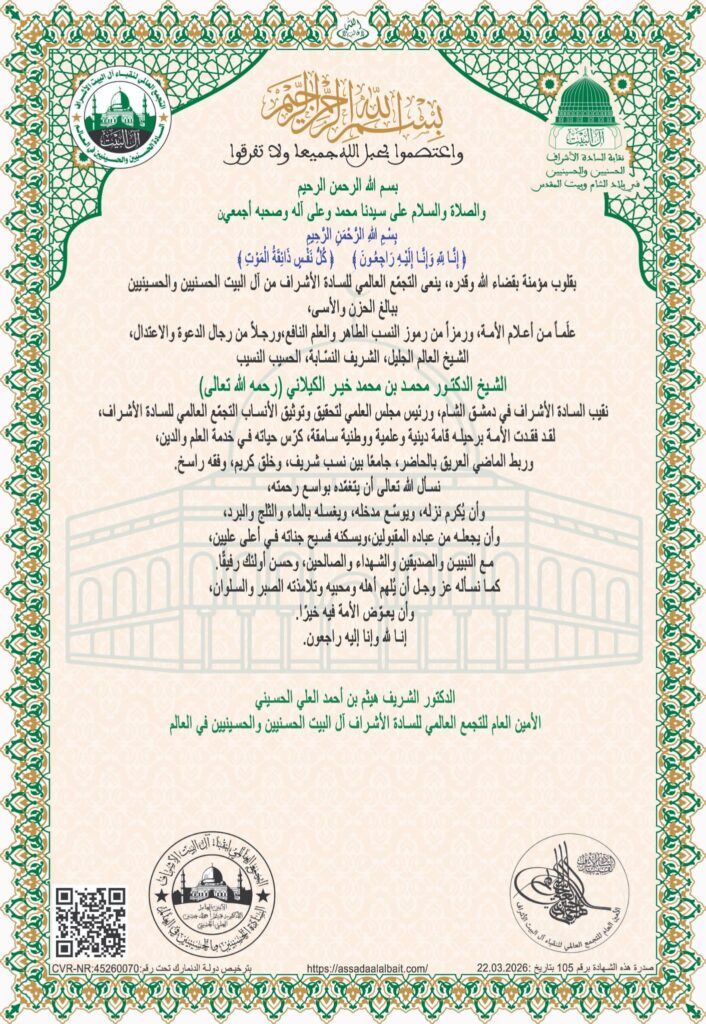 بسم الله الرحمن الرحيم
واعتصموا بحبل الله جميعا ولا تفرقوا
التجمع العالمي لنقباء آل البيت الأشراف
آل البيت
السادة الحسنيين والحسينيين في العالم
آل البيت
نقابة السادة الأشراف
الحسنيين والحسينيين
في بلاد الشام وبيت المقدس
بسم الله الرحمن الرحيم
والصلاة والسلام على سيدنا محمد وعلى آله وصحبه أجمعين
بِسْمِ اللهِ الرَّحْمَنِ الرَّحِيمِ
﴿ إِنَّا لِلَّهِ وَإِنَّا إِلَيْهِ رَاجِعُونَ ﴾ ﴿ كُلُّ نَفْسٍ ذَائِقَةُ الْمَوْتِ ﴾
بقلوب مؤمنة بقضاء الله وقدره، ينعى التجمّع العالمي للسادة الأشراف من آل البيت الحسنيين والحسينيين
ببالغ الحزن والأسى،
علَماً من أعلام الأمة، ورمزاً من رموز النسب الطاهر والعلم النافع،ورجلاً من رجال الدعوة والاعتدال،
الشيخ العالم الجليل، الشريف النسّابة، الحسيب النسيب
الشيخ الدكتور محمد بن محمد خير الكيلاني (رحمه الله تعالى)
نقيب السادة الأشراف في دمشق الشام، ورئيس مجلس العلمي لتحقيق وتوثيق الأنساب التجمّع العالمي للسادة الأشراف،
لقد فقدت الأمة برحيله قامة دينية وعلمية ووطنية سامقة، كرّس حياته في خدمة العلم والدين،
وربط الماضي العريق بالحاضر، جامعًا بين نسب شريف، وخلق كريم، وفقه راسخ.
نسأل الله تعالى أن يتغمّده بواسع رحمته،
وأن يُكرم نزله، ويوسّع مدخله، ويغسله بالماء والثلج والبرد،
وأن يجعله من عباده المقبولين،ويسكنه فسيح جناته في أعلى عليين،
مع النبيين والصديقين والشهداء والصالحين، وحسن أولئك رفيقًا.
كما نسأله عز وجل أن يُلهم أهله ومحبيه وتلامذته الصبر والسلوان،
وأن يعوّض الأمة فيه خيرًا.
إنا لله وإنا إليه راجعون.
الدكتور الشريف هيثم بن أحمد العلي الحسيني
الأمين العام للتجمع العالمي للسادة الأشراف آل البيت الحسنيين والحسينيين في العالم
صدرة هذه الشهادة برقم 105 بتاريخ :22.03.2026
https://assadaalalbait.com/
بترخيص دولة الدنمارك تحت رقم:CVR-NR:45260070